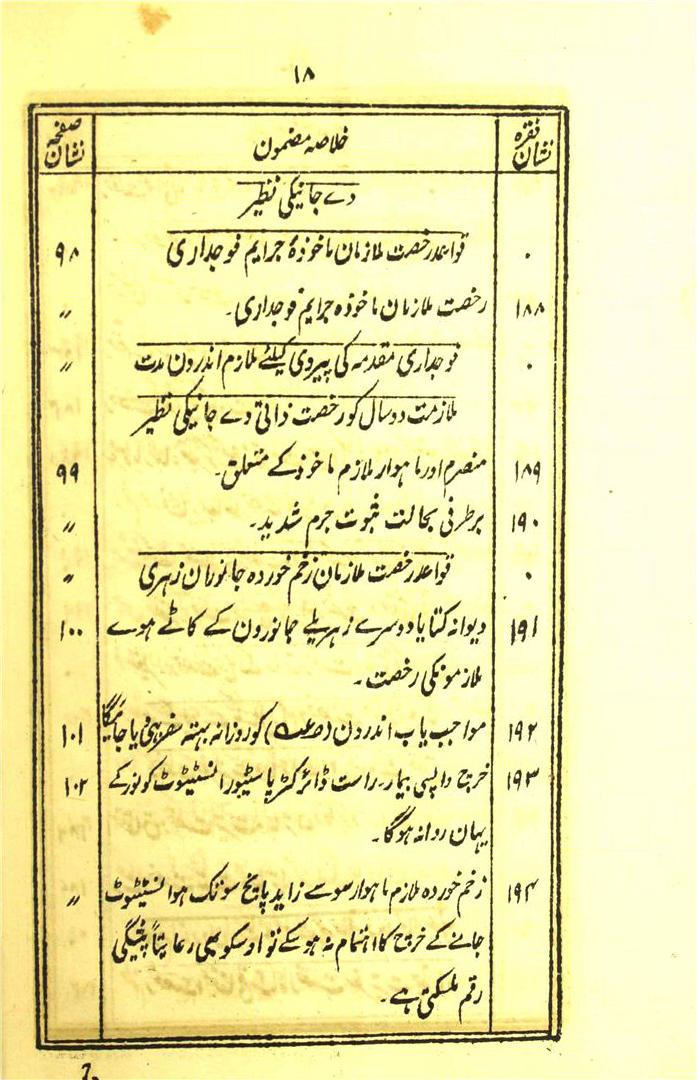 ۱۸
نشان فقرہ | خلاصہ مضمون | نشان صفحہ
دے جانیکی نظیر
۰ | قواعد رخصت ملازمان ماخوذۂ جرایم فوجداری | ۹۸
۱۸۸ | رخصت ملازمان ماخوذہ جرایم فوجداری۔ | ״
۰ | فوجداری مقدمہ کی پیروی کیلئے ملازم اندرون مدت | ״
ملازمت دو سال کو رخصت ذاتی دے جانیکی نظیر
۱۸۹ | منصرم اور ماہوار ملازم ماخوذ کے متعلق۔ | ۹۹
۱۹۰ | برطرفی بحالت ثبوت جرم شدید۔ | ״
۰ | قواعد رخصت ملازمان زخم خوردہ جانوران زہری | ״
۱۹۱ | دیوانہ کتا یا دوسرے زہریلے جانورون کے کاٹے ہوے | ۱۰۰
ملازمونکی رخصت۔
۱۹۲ | مواجب یاب اندرون () کو روزانہ بہتہ سفر بہی دیا جائیگا | ۱۰۱
۱۹۳ | خرچ واپسی بیمار۔ راست ڈائرکٹر پاسٹیور انسٹیٹوٹ کونور کے | ۱۰۲
یہان روانہ ہوگا۔
۱۹۴ | زخم خوردہ ملازم ماہوار سو سے زاید پانچ سو تک ہو انسٹیٹوٹ | ״
جانے کے خرچ کا اہتمام نہ ہو سکے تو اوسکو بھی رعایتاً پیشگی
رقم ملسکتی ہے۔